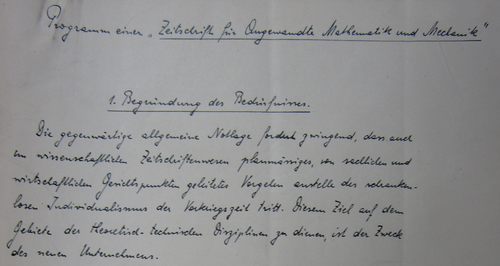 Programm einer „Zeitschrift für Angewandte Mathematik und Mechanik"
1. Begründung des Bedürfnisses.
Die gegenwärtige allgemeine Notlage fordert zwingend, dass auch
im wissenschaftlichen Zeitschriftenwesen planmässiges, von sachlichen und
wirtschaftlichen Gesichtspunkten geleitetes Vorgehen anstelle des schranken-
losen Individualismus der Vorkriegszeit tritt. Diesem Ziel auf dem
Gebiete der theoretisch-technischen Disziplinen zu dienen, ist der Zweck
des neuen Unternehmens.